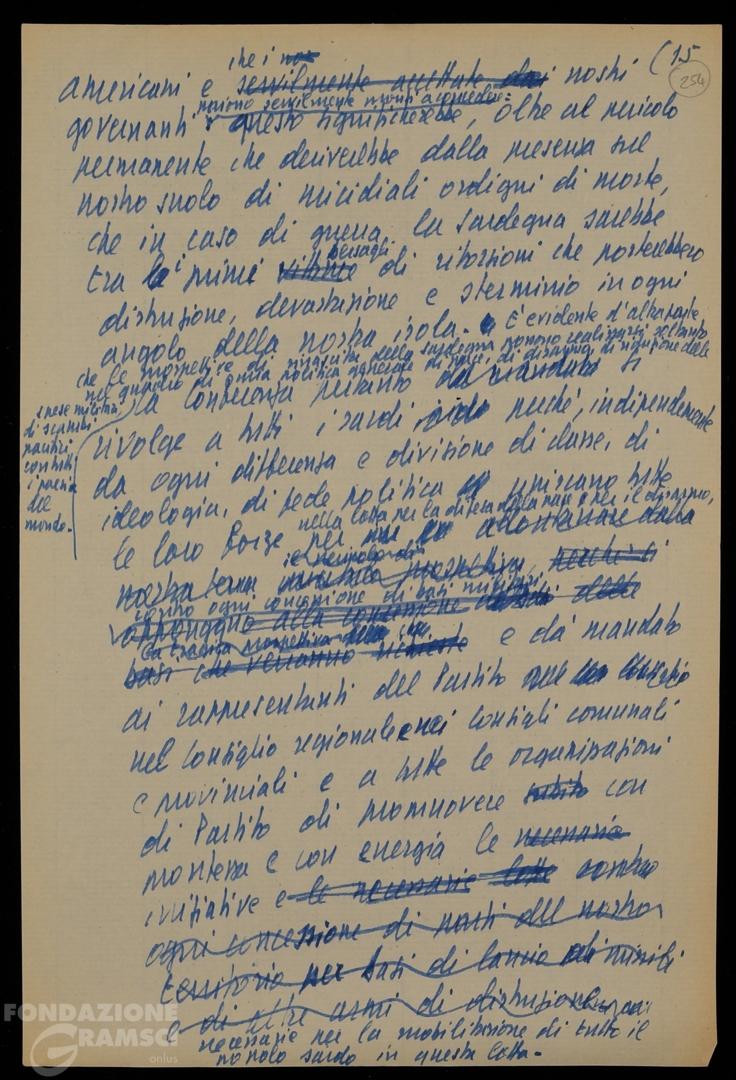 (15
254
che i
americani e servilmente accettate dai nostri
governanti questo significherebbe, oltre al pericolo
permanente che deriverebbe dalla presenza sul
nostro suolo di micidiali ordigni di morte,
che in caso di guerra la Sardegna sarebbe
bersagli
tra i primi vittime di ritorsioni che porterebbero
distruzione, devastazione e sterminio in ogni
angolo della nostra isola. È evidente d'altra parte
che le prospettive di rinascita della Sardegna possono realizzarsi soltanto
nel quadro di una politica generale di pace, di disarmo, di riduzione delle
spese militari
di scambi
pacifici
con tutti
i paesi
del
mondo.
La conferenza pertanto dà mandato si
rivolge a tutti i sardi perché, indipendentemente
da ogni differenza e divisione di classe, di
ideologia, di fede politica uniscano tutte
nella lotta per la difesa della pace e per il disarmo,
le loro forze per allontanare dalla
il pericolo di
nostra terra prospettiva, perché si
contro ogni concessione di basi militari
oppongano alla concessione delle
la tremenda prospettiva
basi che verranno richieste e dà mandato
ai rappresentanti del Partito
nel Consiglio regionale e nei Consigli comunali
e provinciali e a tutte le organizzazioni
di Partito di promuovere subito con
prontezza e con energia le necessarie
iniziative e le necessarie lotte contro
ogni concessione di parti del nostro
territorio per basi di lancio di missili
e di altre armi di distruzione
necessarie per la mobilitazione di tutto il
popolo sardo in questa lotta.
FONDAZIONE
GRAMSCI
onlus